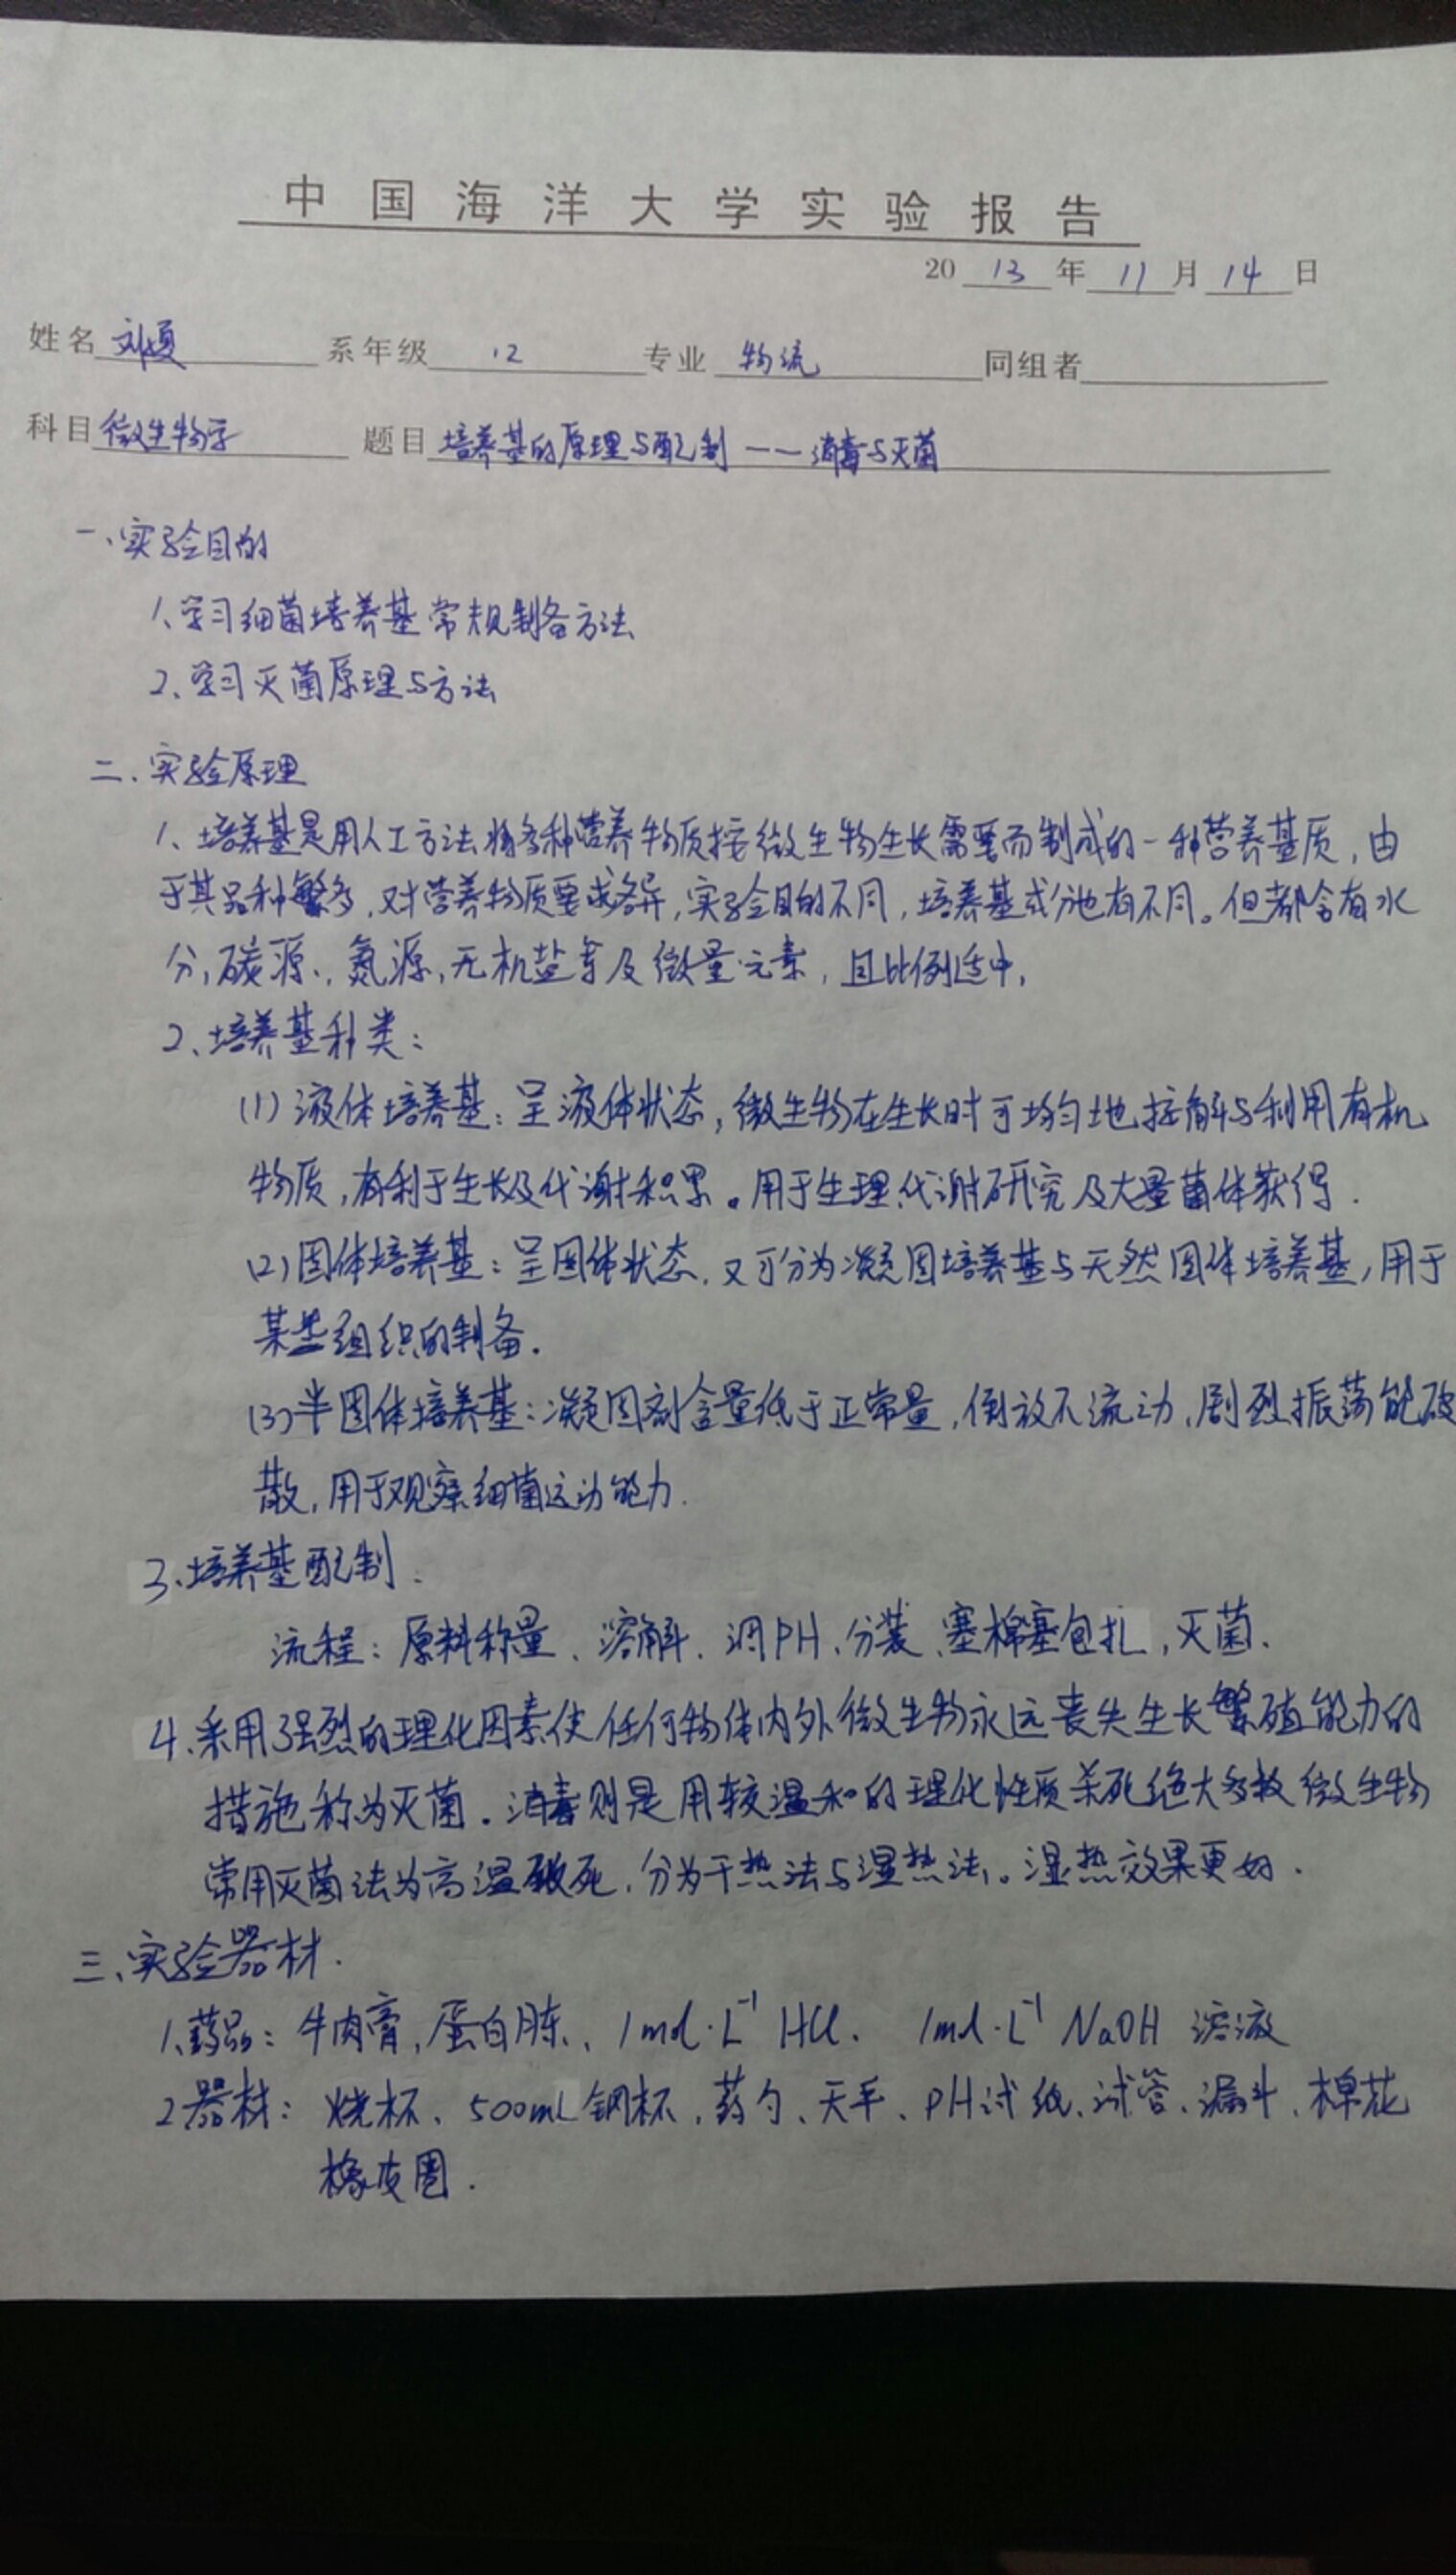 中国海洋大学实验报告
2013年11月14日
姓名 刘 系年级 12 专业 物流 同组者
科目 微生物学 题目 培养基的原理与配制——消毒与灭菌
一、实验目的
1、学习细菌培养基常规制备方法
2、学习灭菌原理与方法
二、实验原理
1、培养基是用人工方法将多种营养物质按微生物生长需要而制成的一种营养基质,由
于其品种繁多,对营养物质要求各异,实验目的不同,培养基成分也有不同。但都含有水
分,碳源、氮源,无机盐等及微量元素,且比例适中,
2、培养基种类:
(1)液体培养基:呈液体状态,微生物在生长时可均匀地接触与利用有机
物质,有利于生长及代谢积累。用于生理代谢研究及大量菌体获得.
(2)固体培养基:呈固体状态,又可分为凝固培养基与天然固体培养基,用于
某些组织的制备.
(3)半固体培养基:凝固剂含量低于正常量,倒放不流动,剧烈振荡能破
散,用于观察细菌运动能力.
3、培养基配制.
流程:原料称量、溶解、调PH、分装、塞棉塞包扎,灭菌、
4、采用强烈的理化因素使任何物体内外微生物永远丧失生长繁殖能力的
措施称为灭菌.消毒则是用较温和的理化性质杀死绝大多数微生物
常用灭菌法为高温致死,分为干热法与湿热法。湿热效果更好.
三、实验器材.
1、药品:牛肉膏,蛋白胨、1mol·L⁻¹ HCl、 1mol·L⁻¹ NaOH 溶液
2器材:烧杯、500mL钢杯,药勺、天平、PH试纸、试管、漏斗、棉花
橡皮圈.